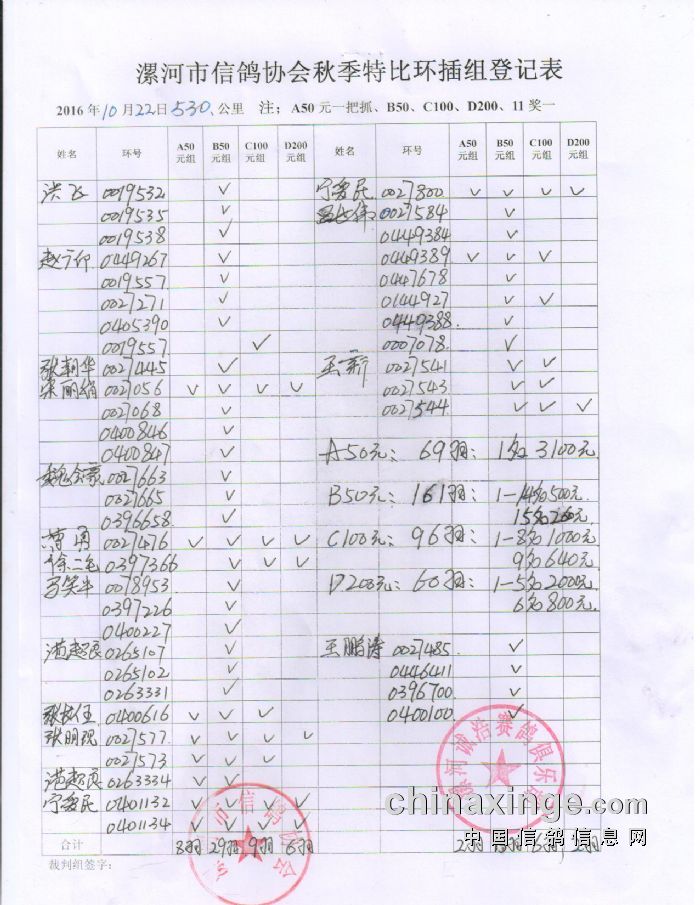 漯河市信鸽协会秋季特比环插组登记表
2016年10月22日530公里 注：A50元一把抓、B50、C100、D200、11奖一
姓名 环号 A50元组 B50元组 C100元组 D200元组 姓名 环号 A50元组 B50元组 C100元组 D200元组
洪飞 0019532 ✓ 民 0027800 ✓ ✓ ✓ ✓
0019535 ✓ 0027584 ✓
0019538 ✓ 0449384 ✓
0449267 ✓ 0449389 ✓ ✓ ✓
0019557 ✓ 0447678 ✓
0027271 ✓ 0144927 ✓ ✓
0405390 ✓ 0449388 ✓
0019557 ✓ 0007078 ✓
张朝华 0027445 ✓ 王新 0027541 ✓ ✓
宋丽娟 0027056 ✓ ✓ ✓ ✓ 0027543 ✓ ✓
0027068 ✓ 0027544 ✓ ✓ ✓
0400846 ✓
0400847 ✓ A50元：69羽：1名3100元
0027663 ✓
0027665 ✓ B50元：161羽：1-14名500元
0396658 ✓ 15名200元
0027476 ✓ ✓ ✓ ✓ C100元：96羽：1-8名1000元
徐二毛 0397366 ✓ ✓ ✓ 9名640元
马笑平 0018953 ✓ D200元：60羽：1-5名2000元
0397226 ✓ 6名800元
0400227 ✓
0265107 ✓ 王鹏涛 0027485 ✓
0265102 ✓ 0446411 ✓
0263331 ✓ 0396700 ✓
0400616 ✓ ✓ ✓ 0400100 ✓
张朋现 0027577 ✓ ✓ ✓ ✓
0027573 ✓ ✓ ✓
0263334 ✓ ✓
民 0401132 ✓ ✓ ✓ ✓
0401134 ✓ ✓ ✓ ✓
合计 8羽 29羽 9羽 6羽 2羽
裁判组签字：
市信鸽协会
漯河诚浩赛鸽俱乐
chinaxinge.com
中国信鸽信息网